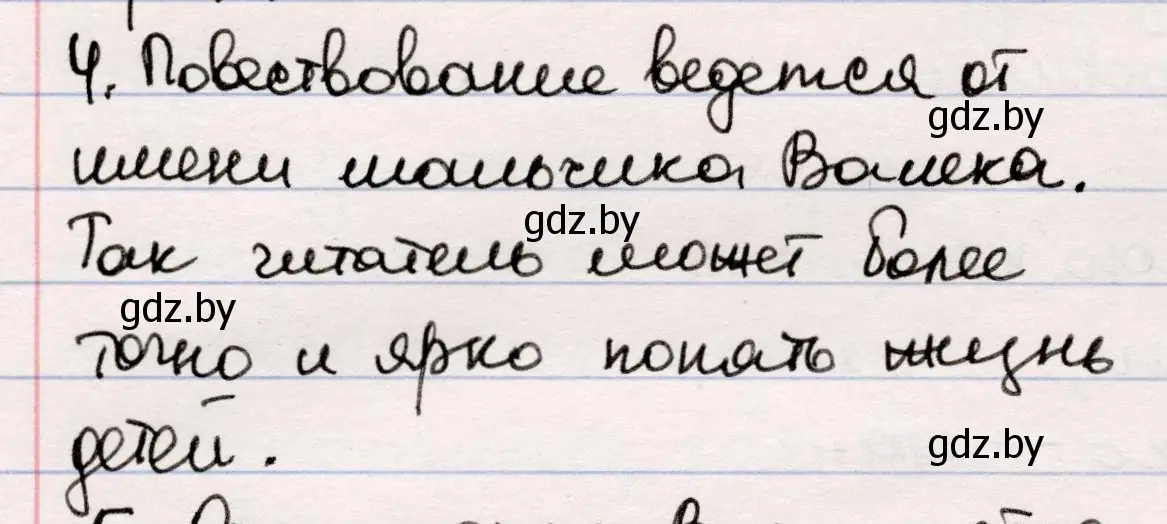 4. Повествование ведется от
gdz.by
имени мальчика Валека.
gdz.by
Так читатель может более
gdz.by
точно и ярко понять жизнь
детей.
gdz.by